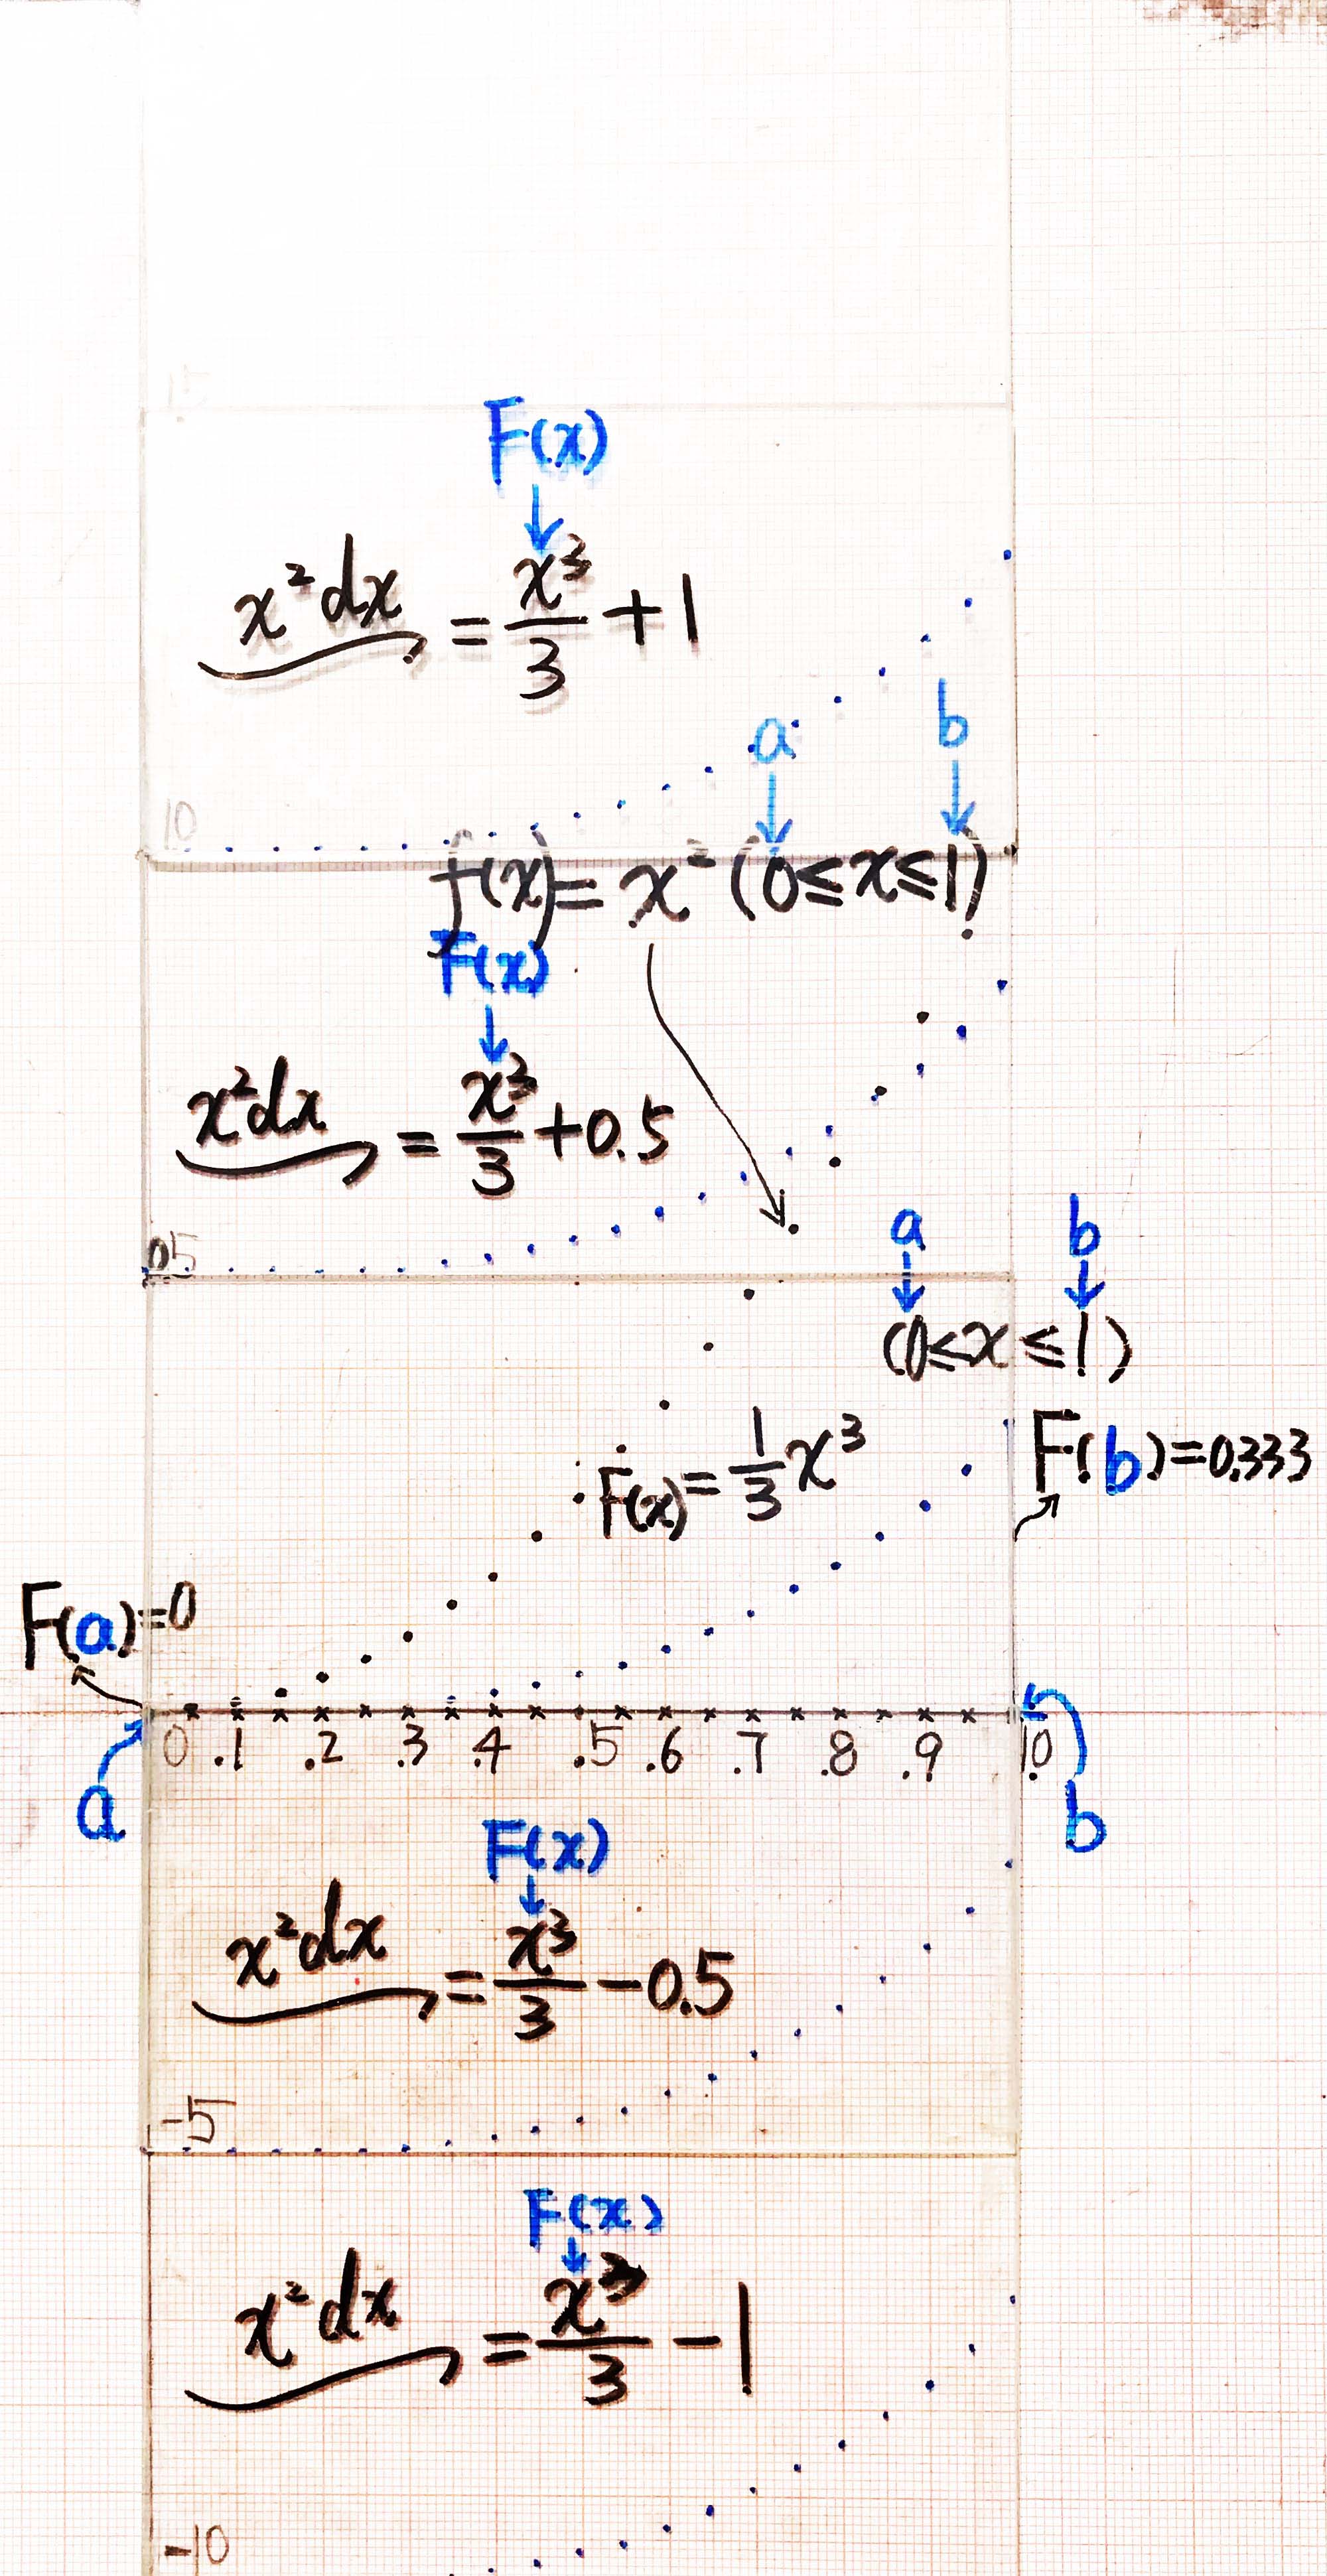 15
F(x)
↓
x² dx = x³/3 + 1
a b
↓ ↓
10
f(x) = x² (0≤x≤1)
F(x)
↓
x²dx = x³/3 +0.5
a b
↓ ↓
05
(0≤x≤1)
F(x) = 1/3 x³
F(b)=0.333
F(a)=0
0 .1 .2 .3 .4 .5 .6 .7 .8 .9 1.0
a b
F(x)
↓
x²dx = x³/3 −0.5
-5
F(x)
↓
x²dx = x³/3 − 1
-10